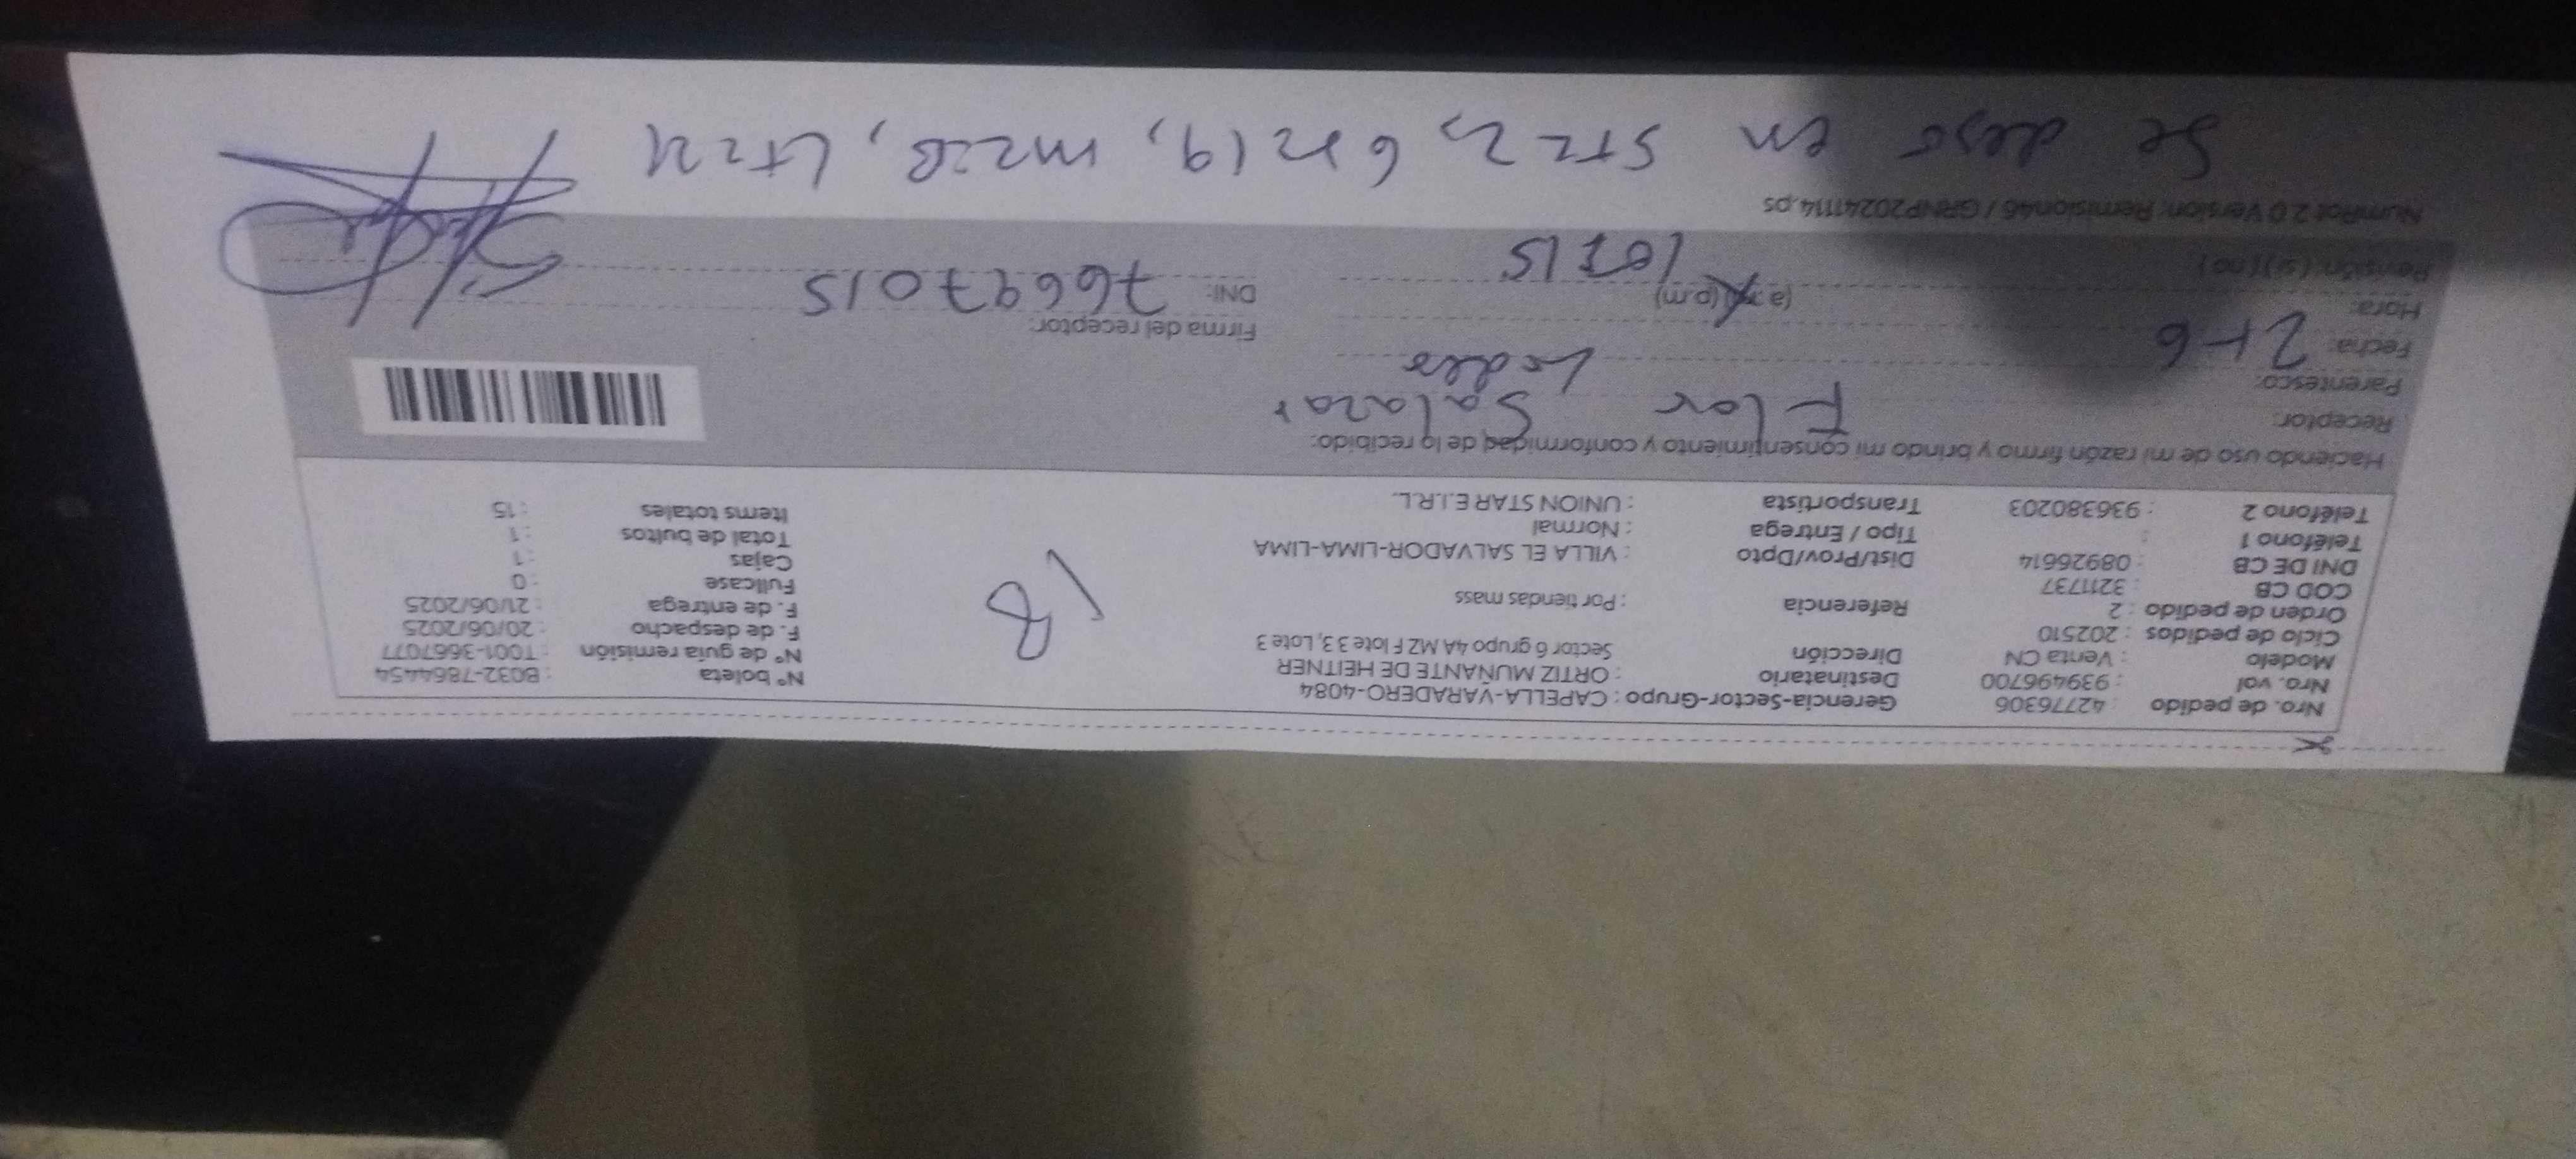 Nro. de pedido : 42776306 Gerencia-Sector-Grupo : CAPELLA-VARADERO-4084
Nro. vol : 939496700 Destinatario : ORTIZ MUÑANTE DE HEITNER Nº boleta : B032-78644454
Modelo : Venta CN Dirección Sector 6 grupo 4A MZ F lote 3 3, Lote 3 Nº de guía remisión : T001-3667077
Ciclo de pedidos : 202510 F. de despacho : 20/06/2025
Orden de pedido : 2 Referencia : Por tiendas mass F. de entrega : 21/06/2025
COD CB : 3211737 Fullcase : 0
DNI DE CB : 08926614 Dist/Prov/Dpto : VILLA EL SALVADOR-LIMA-LIMA Cajas : 1
Teléfono 1 : Tipo / Entrega : Normal Total de bultos : 1
Teléfono 2 : 936380203 Transportista : UNION STAR E.I.R.L. Items totales : 15
18
Haciendo uso de mi razón firmo y brindo mi consentimiento y conformidad de lo recibido:
Receptor: Flor Salazar
Parentesco:
Fecha: 21-6 Firma del receptor:
Hora: (p.m) DNI: 76697015
Revisión: (si) (no)
NumRot 2.0 Version: Remision46 / GRNP20241114.ps
Se en